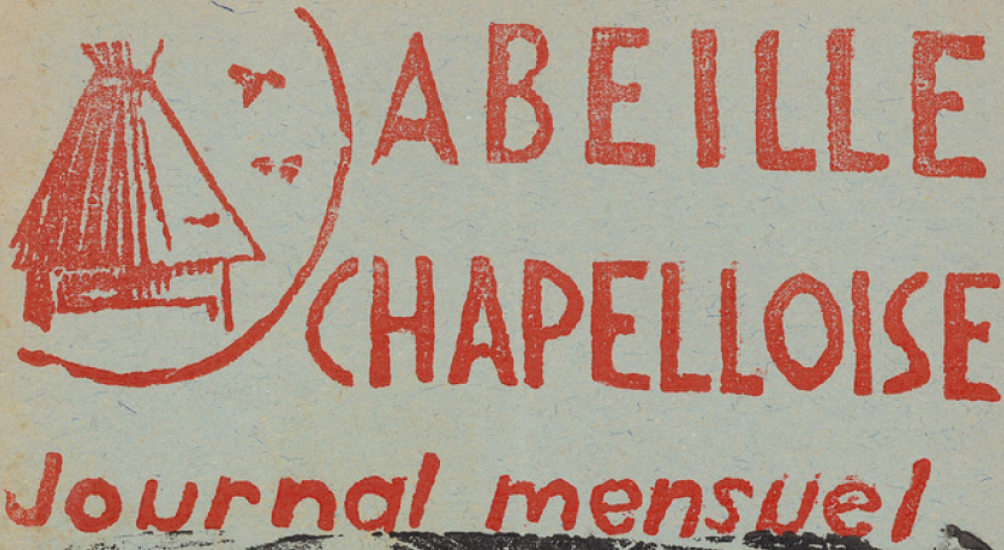 ABEILLE
CHAPELLOISE
Journal mensuel